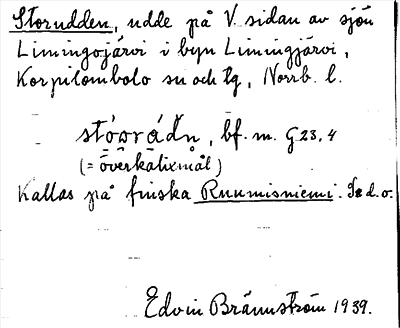 Storudden, udde på V. sidan av sjön
Limingojärvi i byn Limingjärvi,
Korpilombolo sn och tg, Norrb. l.
bf. m. G 23, 4
(= överkalixmål)
Kallas på finska Ruumisniemi. Se d.o.
Edvin Brännström 1939.